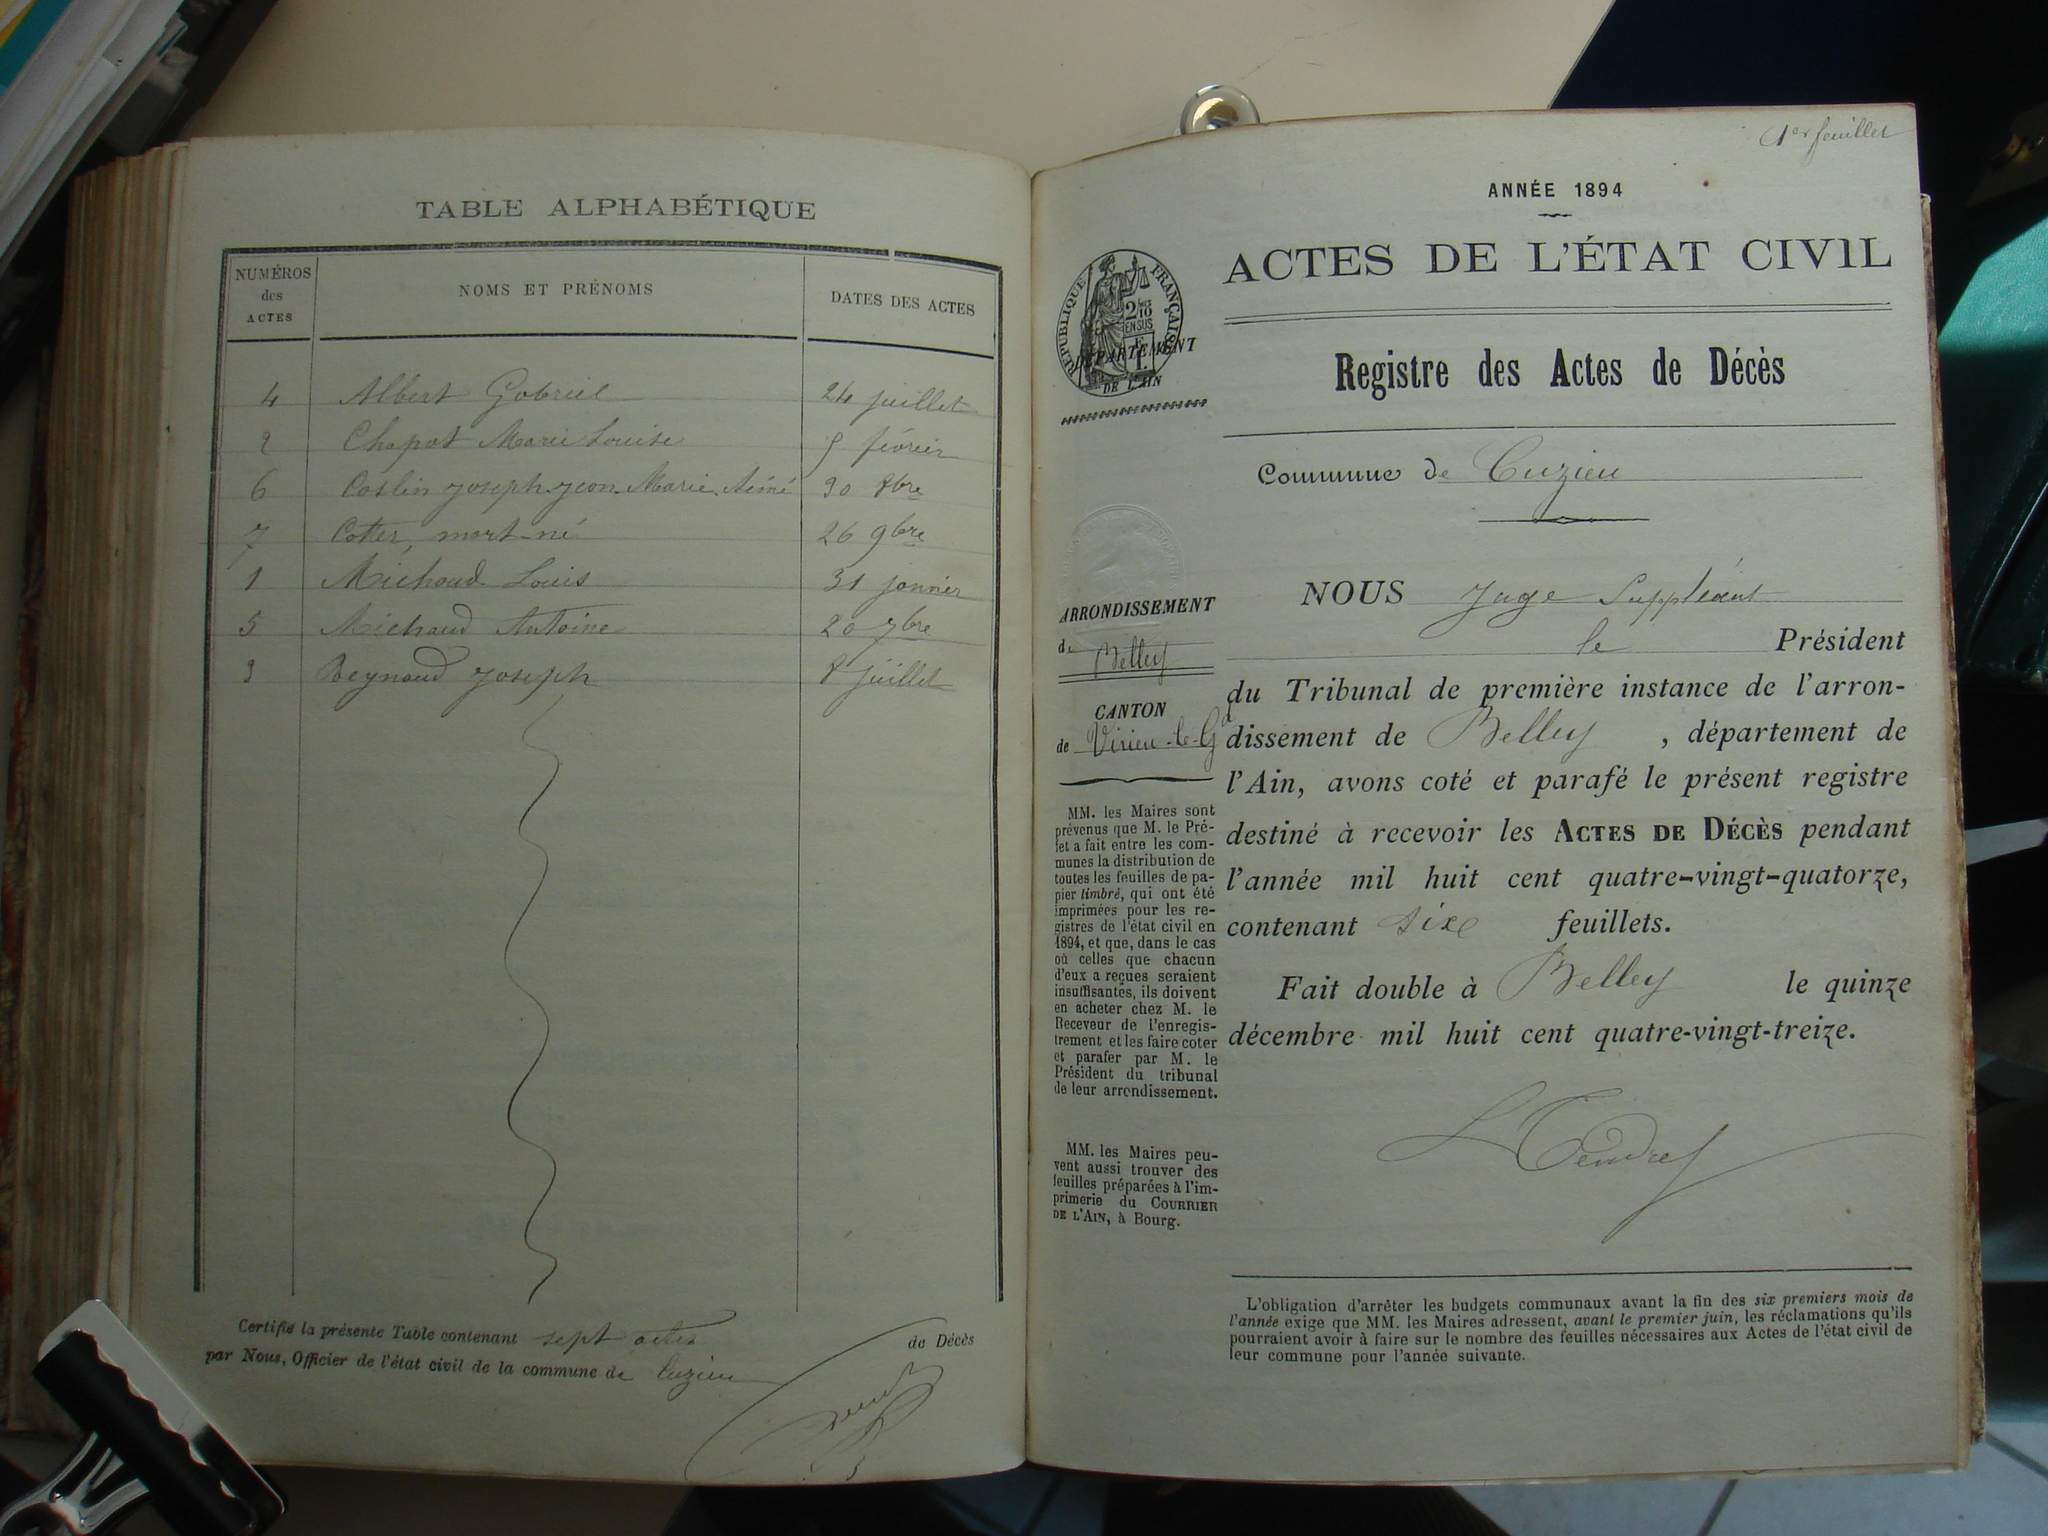 TABLE ALPHABÉTIQUE
NUMÉROS des ACTES
NOMS ET PRÉNOMS
DATES DES ACTES
4 Albert Gabriel 24 juillet
2 Chapot Marie Louise 5 février
6 Coslin Joseph Jean Marie Aimé 30 8bre
7 Cotter, mort-né 26 9bre
1 Michaud Louis 31 janvier
5 Michaud Antoine 20 7bre
3 Reynaud Joseph 8 juillet
Certifié la présente Table contenant sept actes de Décès
par Nous, Officier de l'état civil de la commune de Cuzieu
1er feuillet
ANNÉE 1894
ACTES DE L'ÉTAT CIVIL
RÉPUBLIQUE FRANÇAISE
DÉPARTEMENT
DE L'AIN
Registre des Actes de Décès
Commune de Cuzieu
ARRONDISSEMENT
de Belley
CANTON
de Virieu-le-Gd
MM. les Maires sont
prévenus que M. le Pré-
fet a fait entre les com-
munes la distribution de
toutes les feuilles de pa-
pier timbré, qui ont été
imprimées pour les re-
gistres de l'état civil en
1894, et que, dans le cas
où celles que chacun
d'eux a reçues seraient
insuffisantes, ils doivent
en acheter chez M. le
Receveur de l'enregis-
trement et les faire coter
et parafer par M. le
Président du tribunal
de leur arrondissement.
MM. les Maires peu-
vent aussi trouver des
feuilles préparées à l'im-
primerie du COURRIER
DE L'AIN, à Bourg.
NOUS Juge Suppléant
le Président
du Tribunal de première instance de l'arron-
dissement de Belley, département de
l'Ain, avons coté et parafé le présent registre
destiné à recevoir les ACTES DE DÉCÈS pendant
l'année mil huit cent quatre-vingt-quatorze,
contenant six feuillets.
Fait double à Belley le quinze
décembre mil huit cent quatre-vingt-treize.
L'obligation d'arrêter les budgets communaux avant la fin des six premiers mois de
l'année exige que MM. les Maires adressent, avant le premier juin, les réclamations qu'ils
pourraient avoir à faire sur le nombre des feuilles nécessaires aux Actes de l'état civil de
leur commune pour l'année suivante.